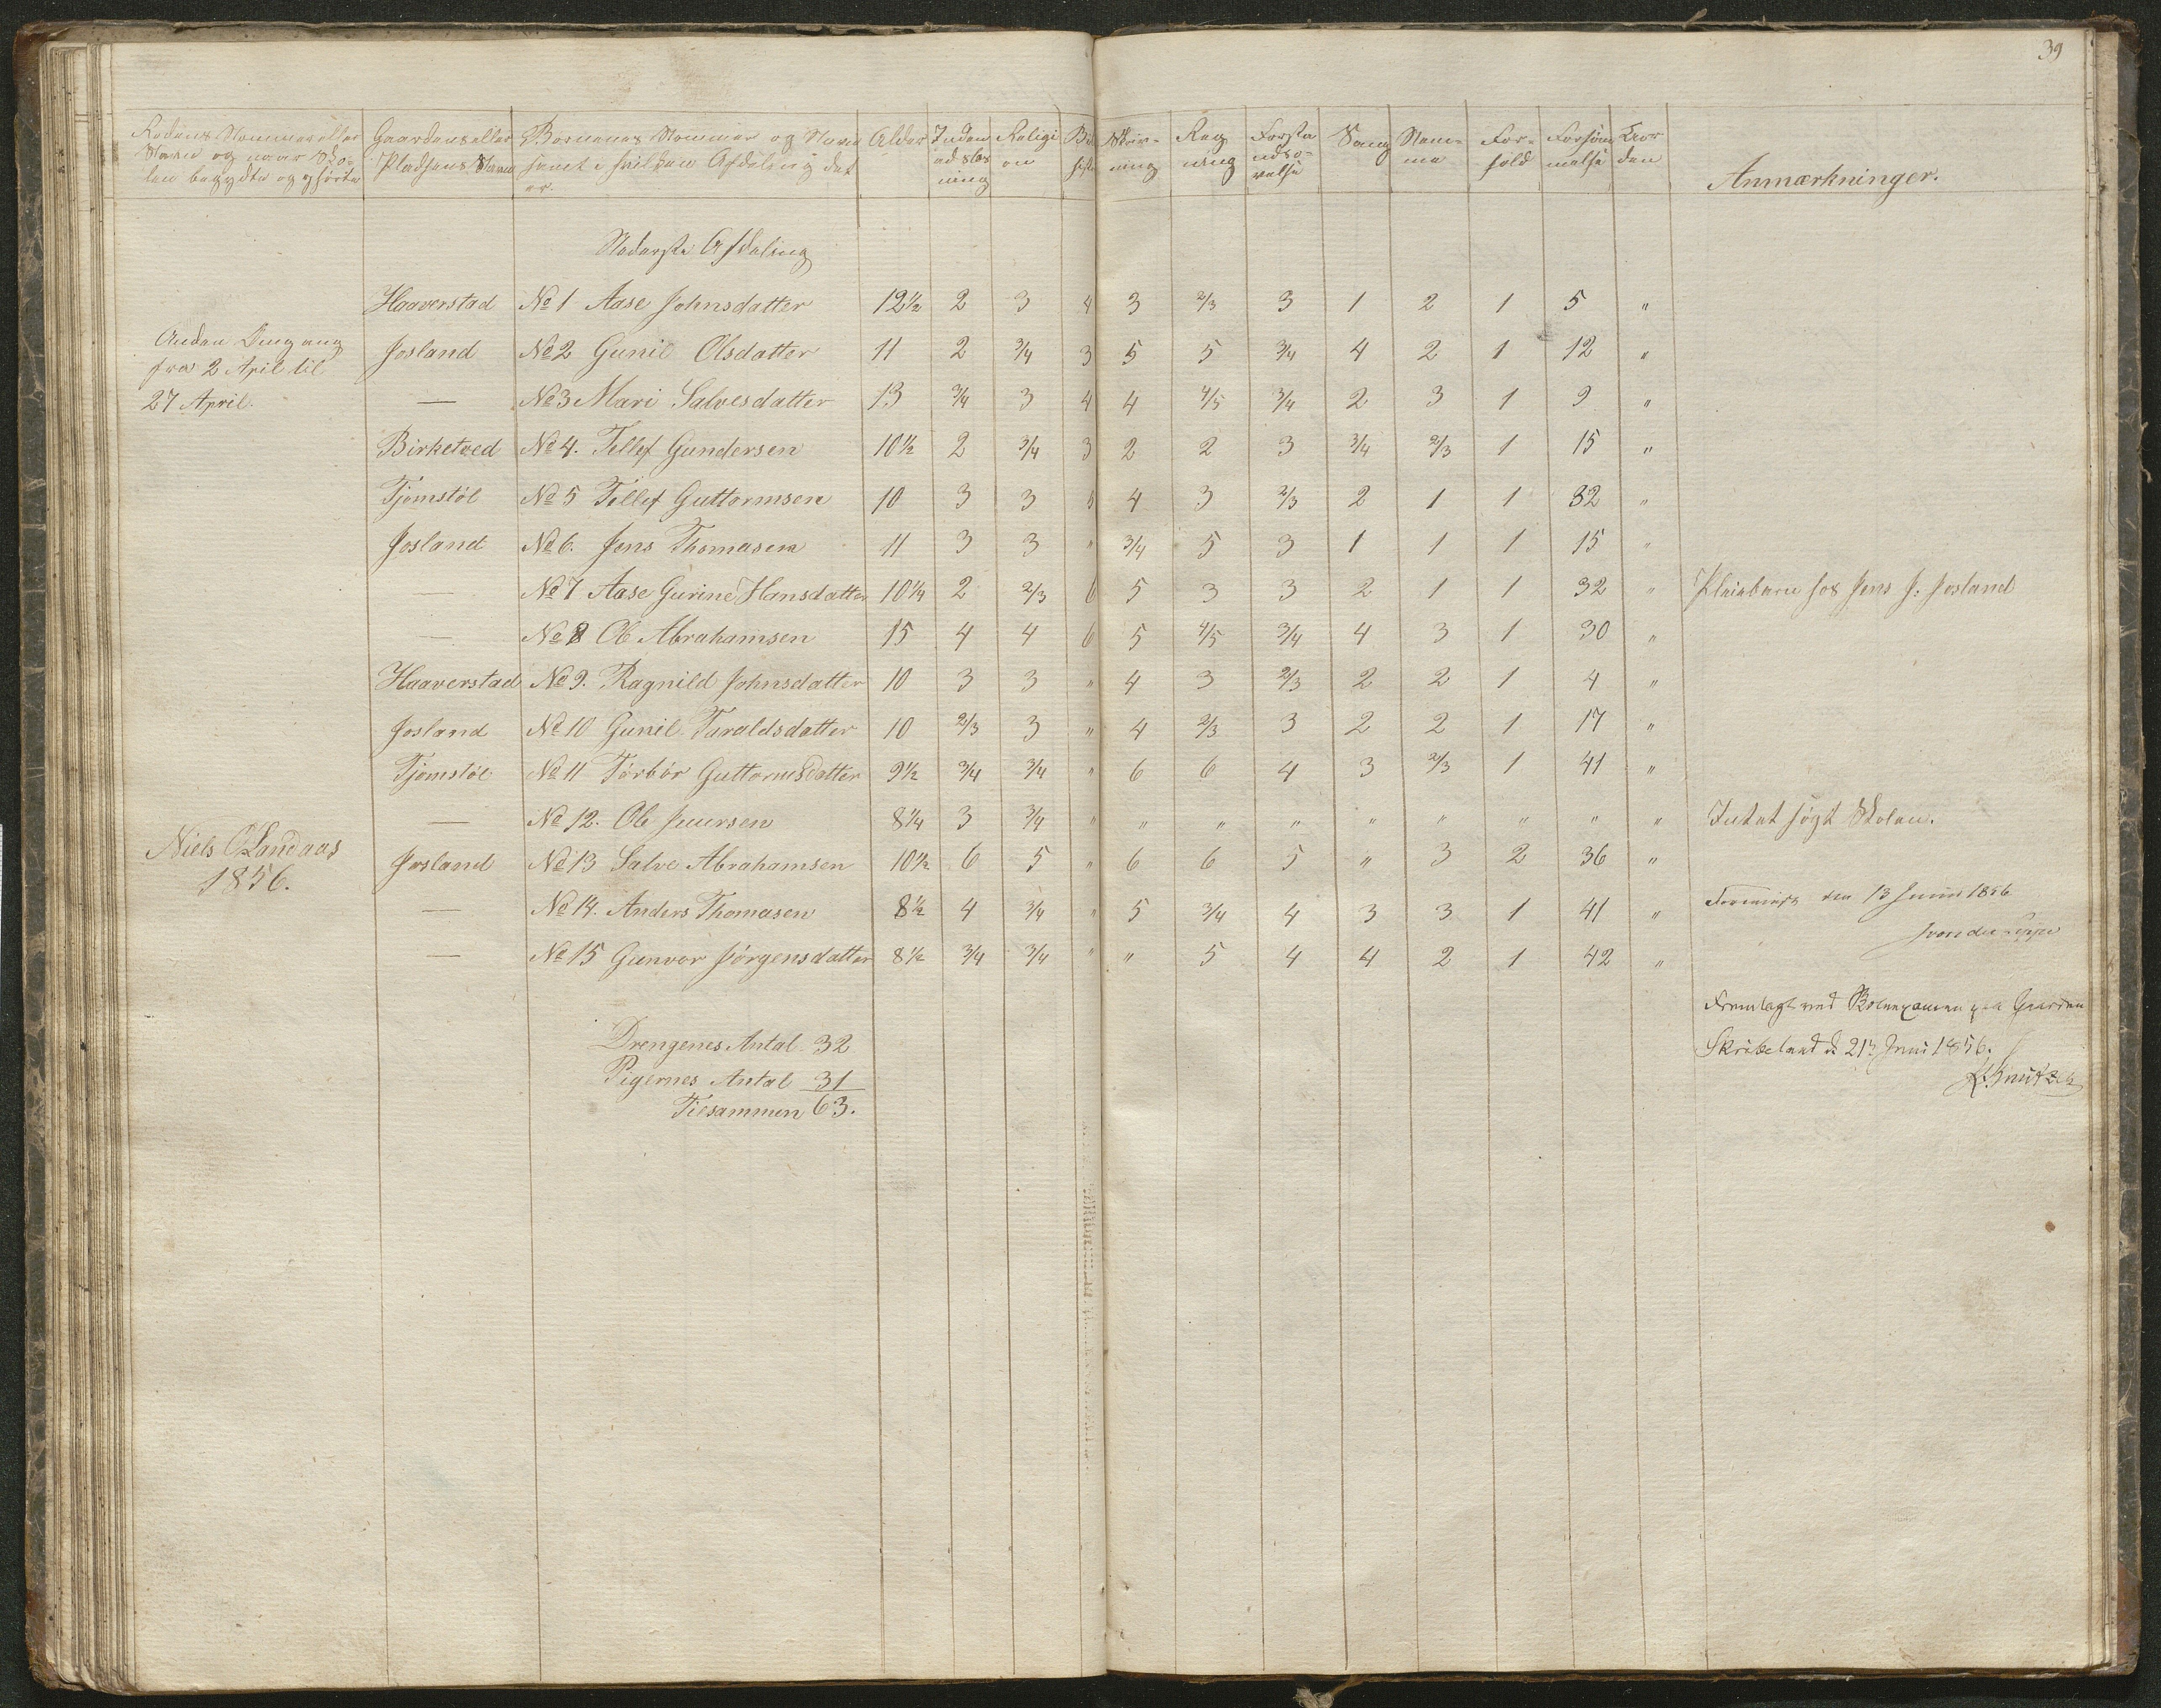 39
Rodens Nummer eller Navn og naar Skolen begyndte og ophørte | Gaardens eller Pladsens Navn | Børnenes Nummer og Navn samt i hvilken Afdeling det er | Alder | Indenadslæsning | Religion | Skrivning | Regning | Forstandsøvelse | Sang | Nemme | Forhold | Forsømmelse | Anmærkninger.
Nederste Afdeling
Haaverstad No 1 Aase Johnsdatter 12½ 2 3 4 3 2/3 3 1 2 1 5 "
Anden Omgang
fra 2 April til
27 April.
Josland No 2 Gunil Olsdatter 11 2 3/4 3 5 5 3/4 4 2 1 12 "
— No 3 Mari Salvesdatter 13 3/4 3 4 4 4/5 3/4 2 3 1 9 "
Birketved No 4. Tellef Gundersen 10½ 2 3/4 3 2 2 3 3/4 2/3 1 15 "
Tjomstöl No 5 Tellef Guttormsen 10 3 3 5 4 3 2/3 2 1 1 32 "
Josland No 6. Jens Thomasen 11 3 3 " 3/4 5 3 1 1 1 15 "
— No 7 Aase Gurine Hansdatter 10¼ 2 2/3 6 5 3 3 2 1 1 32 " Pleiebarn hos Jens J. Josland
— No 8 Ole Abrahamsen 15 4 4 6 5 4/5 3/4 4 3 1 30 "
Haaverstad No 9. Ragnild Johnsdatter 10 3 3 " 4 3 2/3 2 2 1 4 "
Josland No 10 Gunil Taraldsdatter 10 2/3 3 " 4 2/3 3 2 2 1 17 "
Tjomstöl No 11 Törbör Guttormsdatter 9½ 3/4 3/4 " 6 6 4 3 2/3 1 41 "
— No 12. Ole Juursen 8¼ 3 3/4 " " " " " " " " " Intet søgt Skolen.
Niels O Landaas
1856.
Josland No 13 Salve Abrahamsen 10½ 6 5 " 6 6 5 " 3 2 36 "
— No 14. Anders Thomasen 8½ 4 3/4 " 5 3/4 4 3 3 1 41 "
— No 15 Gunvor Jörgensdatter 8½ 3/4 3/4 " " 5 4 4 2 1 42 "
Foreviist den 13 Juni 1856
Fremlagt ved Skoleexamen paa Gaarden
Skribeland d 21de Juni 1856.
Drengenes Antal 32
Pigernes Antal 31
Tilsammen 63.